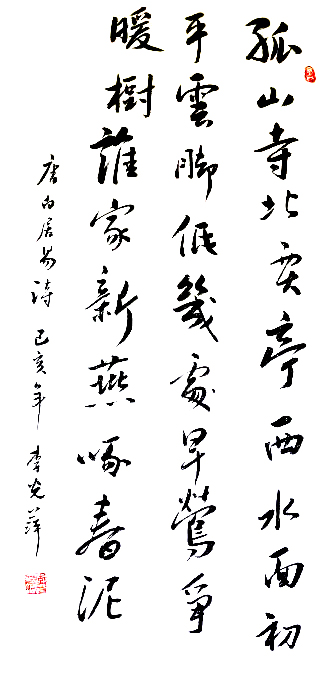 孤山寺北賈亭西水面初
平雲脚低幾處早鶯爭
暖樹誰家新燕啄春泥
唐白居易詩 己亥年 李光萍